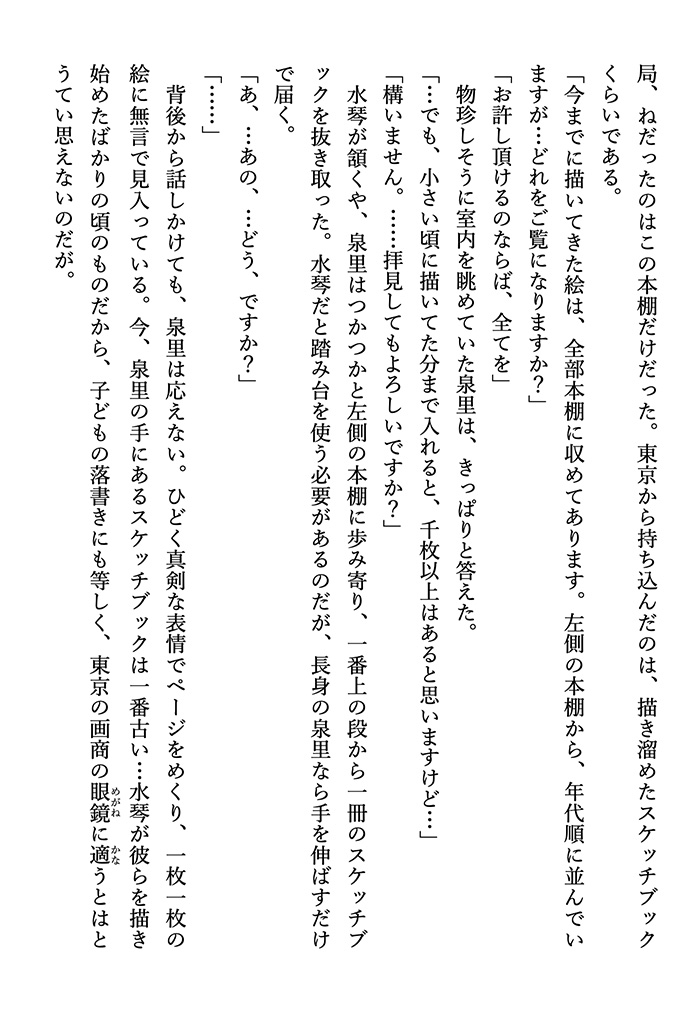 局、ねだったのはこの本棚だけだった。東京から持ち込んだのは、描き溜めたスケッチブック
くらいである。
「今までに描いてきた絵は、全部本棚に収めてあります。左側の本棚から、年代順に並んでい
ますが…どれをご覧になりますか?」
「お許し頂けるのならば、全てを」
物珍しそうに室内を眺めていた泉里は、きっぱりと答えた。
「…でも、小さい頃に描いてた分まで入れると、千枚以上はあると思いますけど…」
「構いません。……拝見してもよろしいですか?」
水琴が頷くや、泉里はつかつかと左側の本棚に歩み寄り、一番上の段から一冊のスケッチブ
ックを抜き取った。水琴だと踏み台を使う必要があるのだが、長身の泉里なら手を伸ばすだけ
で届く。
「あ、…あの、…どう、ですか?」
「……」
背後から話しかけても、泉里は応えない。ひどく真剣な表情でページをめくり、一枚一枚の
絵に無言で見入っている。今、泉里の手にあるスケッチブックは一番古い…水琴が彼らを描き
始めたばかりの頃のものだから、子どもの落書きにも等しく、東京の画商の眼鏡(めがね)に適(かな)うとはと
うてい思えないのだが。